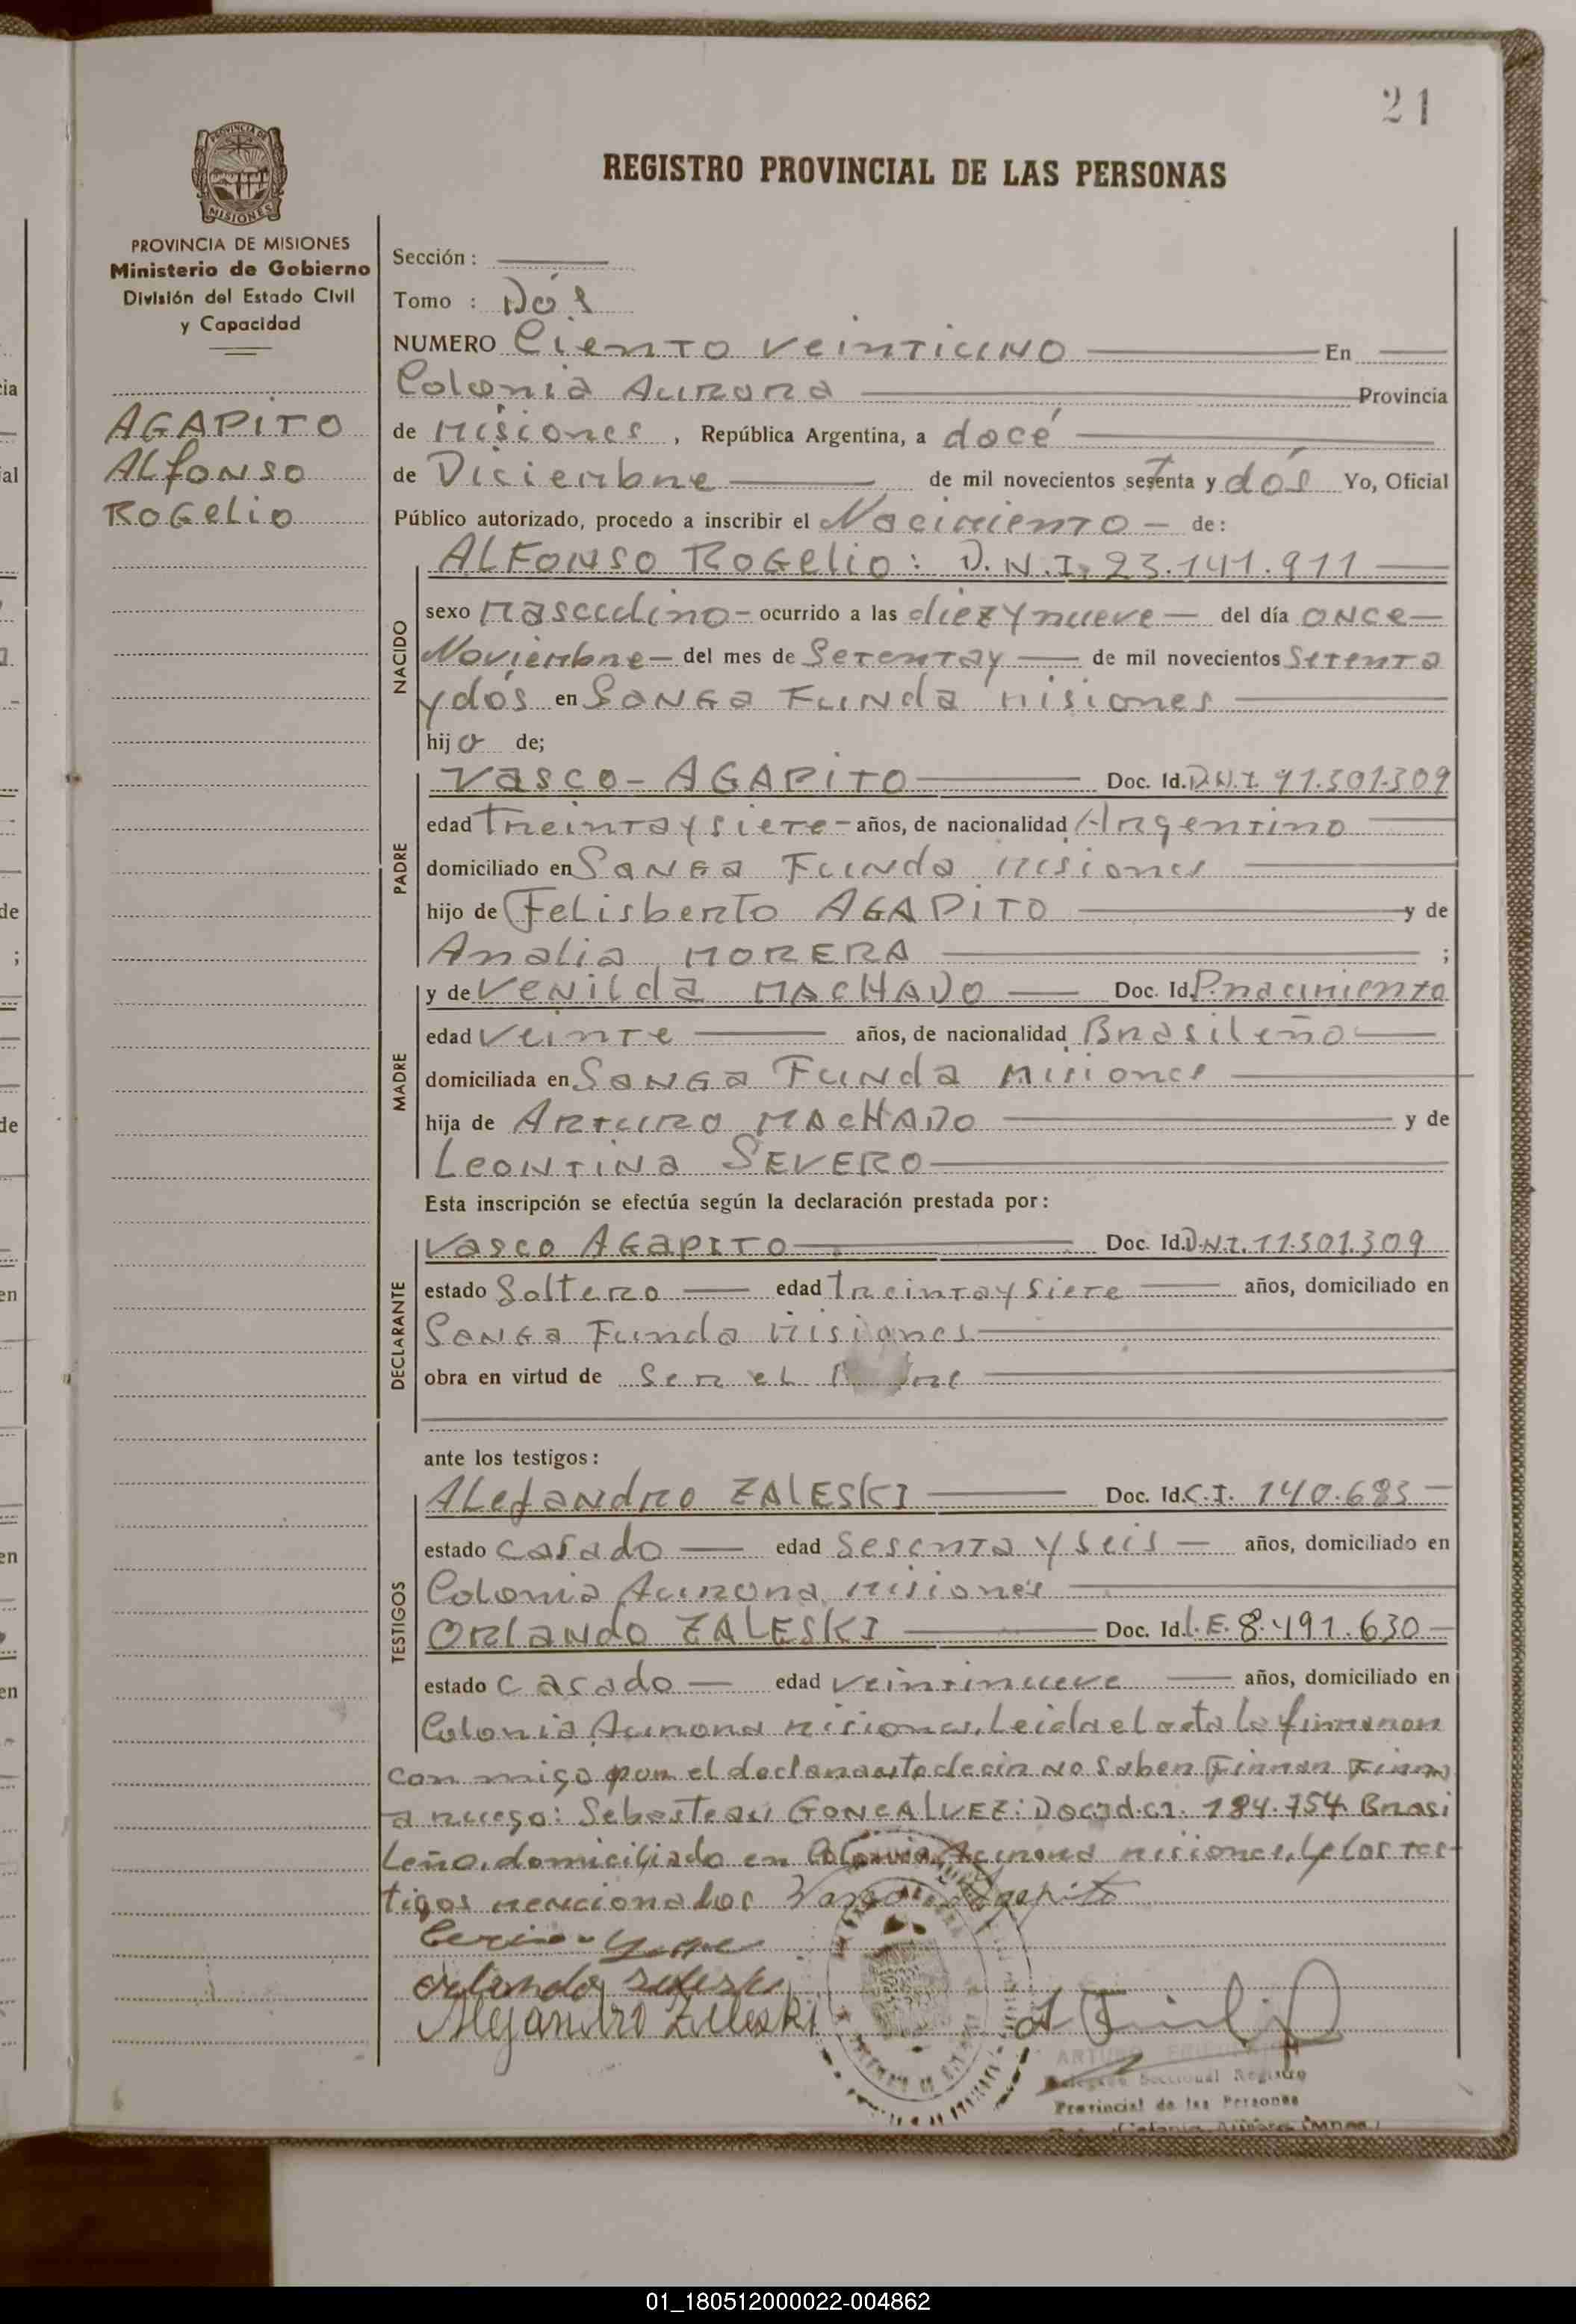 21
REGISTRO PROVINCIAL DE LAS PERSONAS
PROVINCIA DE MISIONES
PROVINCIA DE MISIONES
Ministerio de Gobierno
División del Estado Civil
y Capacidad
AGAPITO
ALfonso
ROGELIO
Sección :
Tomo : Dós
NUMERO Ciento veintiuno En
Colonia Aurora Provincia
de Misiones, República Argentina, a docé
de Diciembre de mil novecientos setenta y dós Yo, Oficial
Público autorizado, procedo a inscribir el Nacimiento de:
NACIDO
ALFONSO ROGELIO: D.N.I. 23.141.911
sexo masculino - ocurrido a las diez y nueve del día ONCE
Noviembre - del mes de Setenta y de mil novecientos Setenta
y dós en Sanga Funda Misiones
hijo de;
PADRE
Vasco - AGAPITO Doc. Id. D.N.I. 11.501.309
edad treinta y siete - años, de nacionalidad Argentino
domiciliado en Sanga Funda Misiones
hijo de Felisberto AGAPITO y de
Analia MORERA ;
MADRE
y de Venilda MACHADO Doc. Id. P. nacimiento
edad veinte años, de nacionalidad Brasileño
domiciliada en Sanga Funda Misiones
hija de Arturo MACHADO y de
Leontina SEVERO
Esta inscripción se efectúa según la declaración prestada por:
DECLARANTE
Vasco AGAPITO Doc. Id. D.N.I. 11.501.309
estado Soltero edad treinta y siete años, domiciliado en
Sanga Funda Misiones
obra en virtud de ser el
ante los testigos:
TESTIGOS
Alejandro ZALESKI Doc. Id. C.I. 140.685
estado casado edad sesenta y seis años, domiciliado en
Colonia Aurora, Misiones
Orlando ZALESKI Doc. Id. L.E. 8.491.630
estado casado edad veintinueve años, domiciliado en
Colonia Aurora Misiones. Leida el acta la firmaron
con migo por el declarante decir no saben Firmar Firma
a ruego: GONCALVEZ: Doc. Id. C.I. 184.754 Brasi
leño, domiciliado en Colonia Aurora Misiones, y los tes-
tigos mencionados Vasco Agapito
Orlando Zaleski
Alejandro Zaleski
Delegado Seccional Registro
Provincial de las Personas
Colonia Aurora (Mnes.)
01_180512000022-004862